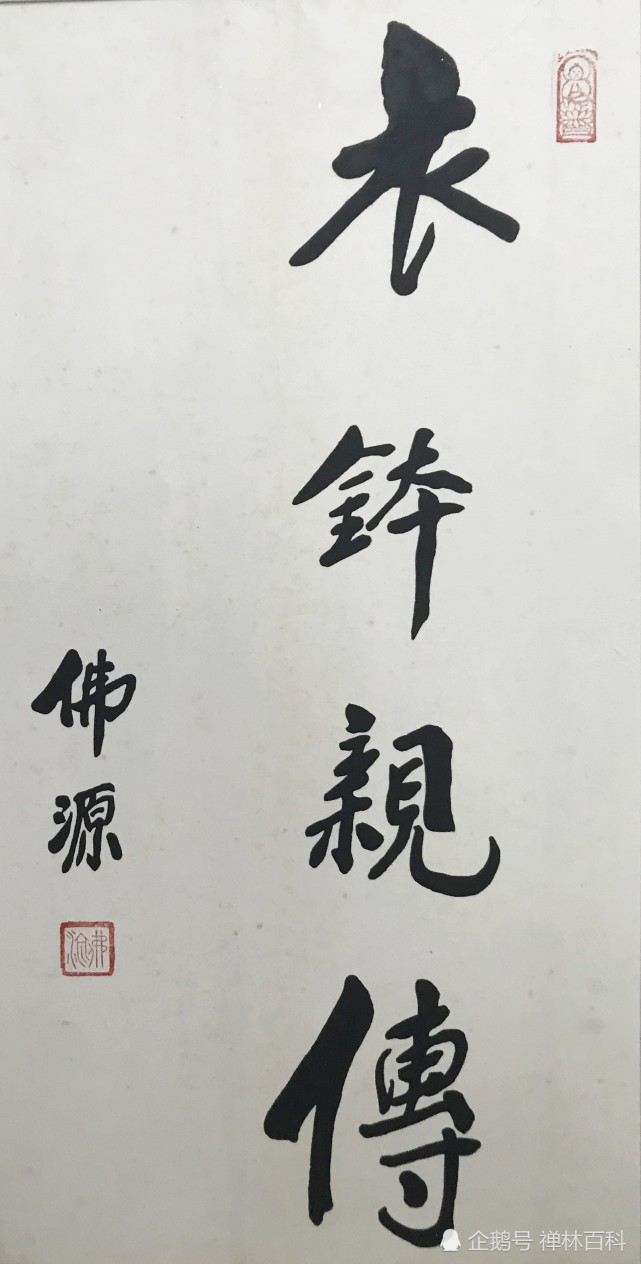 衣鉢親傳
佛源
企鹅号 禅林百科